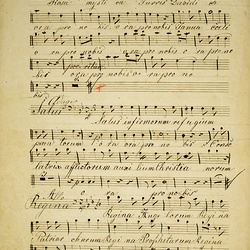 Rosa mysti ca Turris Davidi ca
ora pro no bis o ra pro nobis Janua coeli
o ra pro nobis o ra pro nobis o ra pro no
bis ora pro nobis o ra pro no
bis
Adagio
Salus Salus infirmorum refugium
peccatorum o ra ora pro no bis Conso
latrix afflictorum auxi
norum
All° ora pro no bis
Regina Regina Angelorum Regina
Patriar charum Regi na Prophetarum Regina